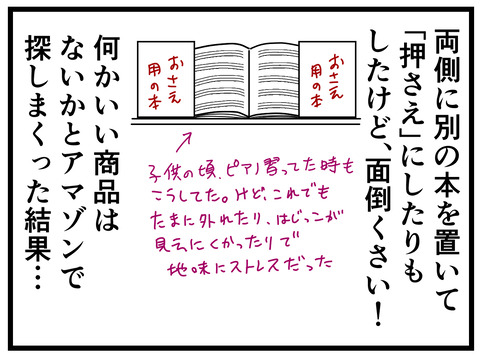 両側に別の本を置いて
「押さえ」にしたりも
したけど、面倒くさい！
おさえ
用の本
おさえ
用の本
子供の頃、ピアノ習ってた時も
こうしてた。けど、これでも
たまに外れたり、はじっこが
見えにくかったりで
地味にストレスだった
何かいい商品は
ないかとアマゾンで
探しまくった結果…